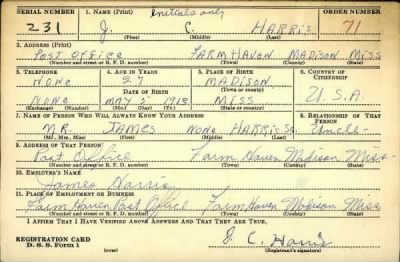 SERIAL NUMBER 1. NAME (Print) initials only ORDER NUMBER
231 J. C. HARRIS 71
(First) (Middle) (Last)
2. ADDRESS (Print)
Post Office FARM HAVEN MADISON MISS
(Number and street or R. F. D. number) (Town) (County) (State)
3. TELEPHONE 4. AGE IN YEARS 5. PLACE OF BIRTH 6. COUNTRY OF CITIZENSHIP
NONE 27 MADISON
DATE OF BIRTH (Town or county) U.S.A
NONE MAY 2 1913 MISS
(Exchange) (Number) (Mo.) (Day) (Yr.) (State or country)
7. NAME OF PERSON WHO WILL ALWAYS KNOW YOUR ADDRESS 8. RELATIONSHIP OF THAT PERSON
MR. JAMES NONE HARRIS Sr. Uncle
(Mr., Mrs., Miss) (First) (Middle) (Last)
9. ADDRESS OF THAT PERSON
Post Office Farm Haven Madison Miss
(Number and street or R. F. D. number) (Town) (County) (State)
10. EMPLOYER'S NAME
James Harris
11. PLACE OF EMPLOYMENT OR BUSINESS
Farm Haven Post Office Farm Haven Madison Miss
(Number and street or R. F. D. number) (Town) (County) (State)
I AFFIRM THAT I HAVE VERIFIED ABOVE ANSWERS AND THAT THEY ARE TRUE.
REGISTRATION CARD J. C. Harris
D. S. S. Form 1 (over) (Registrant's signature)